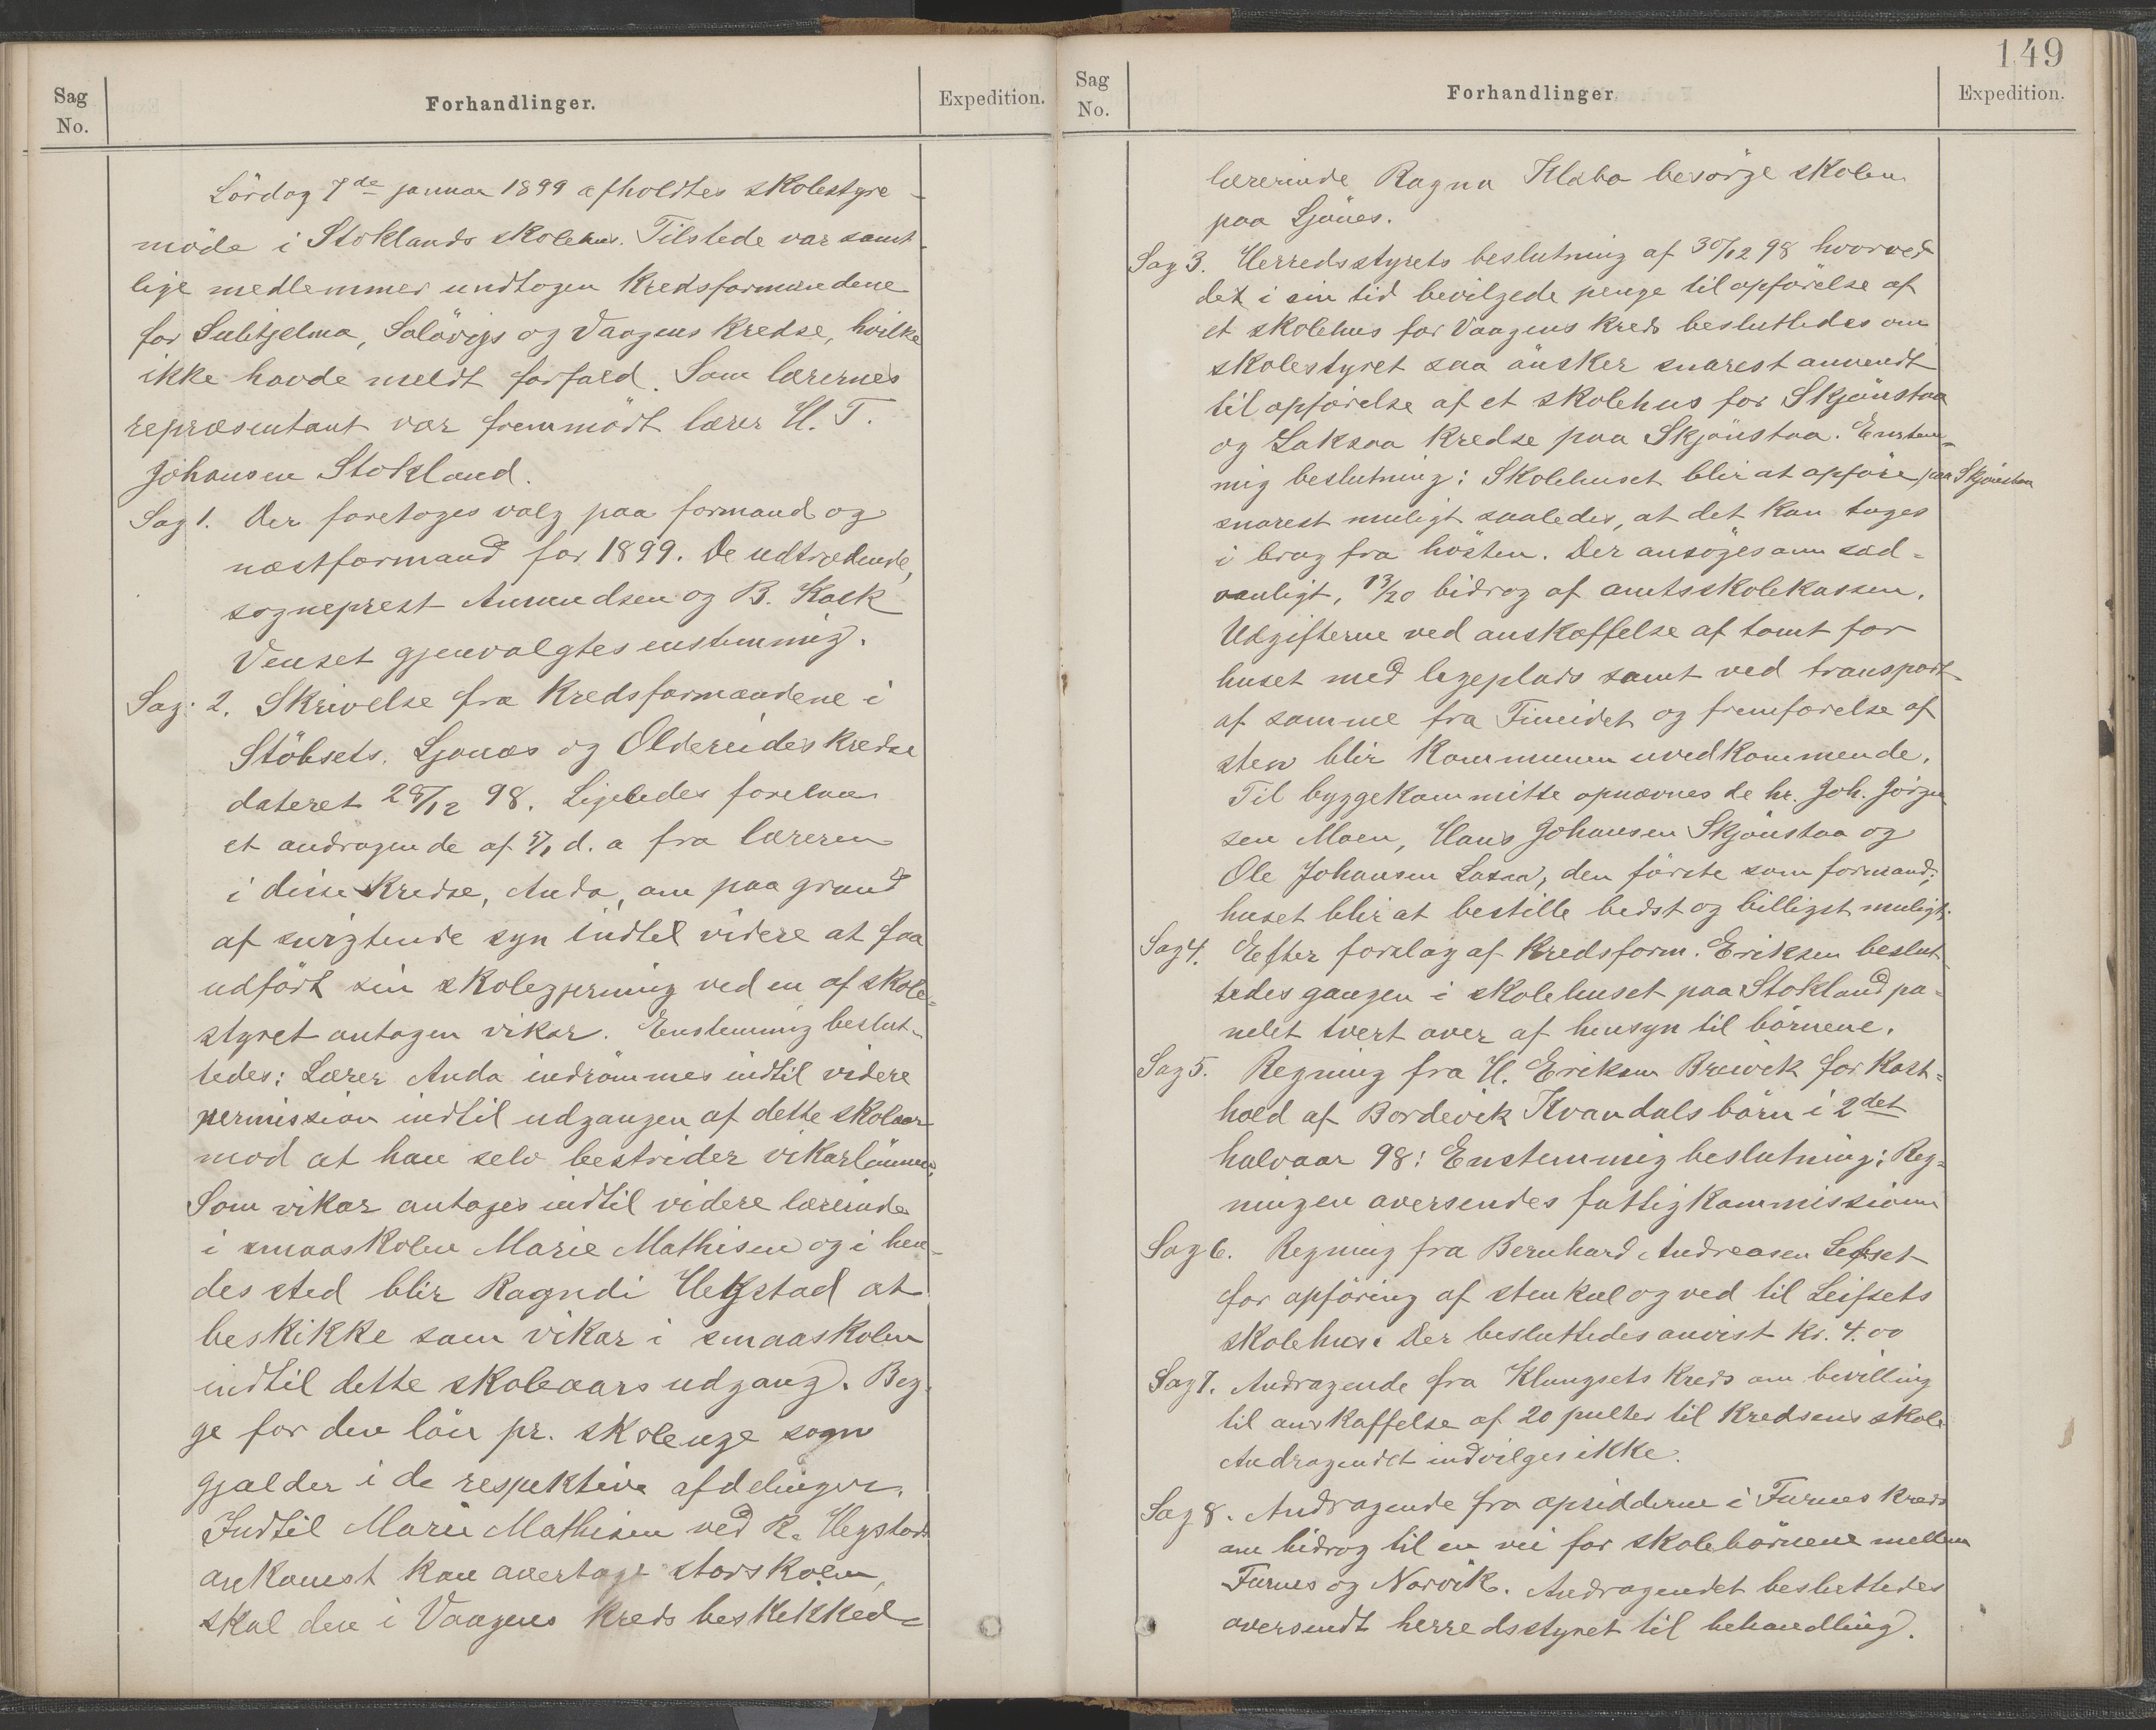 Sag No.
Forhandlinger.
Expedition.
Lördag 7de januar 1899 afholdtes skolestyre-
möde i Stoklands skolehus. Tilstede var samt-
lige medlemmer undtagen kredsformændene
for Sulitjelma, Solövigs og Vaagens kredse, hvilke
ikke havde meldt forfald. Som lærernes
repræsentant var fremmödt lærer H. T.
Johansen Stokland.
Sag 1. Der foretoges valg paa formand og
næstformand for 1899. De udtrædende,
sogneprest Amundsen og B. Kosk
Venset gjenvalgtes enstemmig.
Sag: 2. Skrivelse fra kredsformændene i
Stöbsets, Ljönæs og Oldereides kredse
dateret 28/12 98. Ligeledes forelaa
et andragende af 5/1 d. a fra læreren
i disse kredse, Anda, om paa grund
af svigtende syn indtil videre at faa
udfört sin skolegjerning ved en af skole-
styret antagen vikar. Enstemmig beslut-
tedes: Lærer Anda indrömmes indtil videre
permission indtil udgangen af dette skoleaar
mod at han selv bestrider vikarlönnen.
Som vikar antages indtil videre lærerinde
i smaaskolen Marie Mathisen og i hen-
des sted blir Ragndi Hegstad at
beskikke som vikar i smaaskolen
indtil dette skoleaars udgang. Beg-
ge for den lön pr. skoleuge som
gjælder i de respektive afdelinger.
Indtil Marie Mathisen ved R. Hegstads
ankomst kan overtage storskolen,
skal den i Vaagens kreds beskikked-
149
Sag No.
Forhandlinger
Expedition.
lærerinde Ragna Klæbo besörge skolen
paa Ljönes.
Sag 3. Herredsstyrets beslutning af 30/12 98 hvorved
det i sin tid bevilgede penge til opförelse af
et skolehus for Vaagens kreds besluttedes om
skolestyret saa önsker snarest anvendt
til opförelse af et skolehus for Skjönstaa
og Laksaa kredse paa Skjönstaa. Enstem-
mig beslutning: Skolehuset blir at opföre paa Skjönstaa
snarest muligt saaledes, at det kan tages
i brug fra hösten. Der ansöges om sæd-
vanligt, 13/20 bidrag af amtsskolekassen.
Udgifterne ved anskaffelse af tomt for
huset med legeplads samt ved transport
af samme fra Fineidet og fremförelse af
sten blir kommunen uvedkommende.
Til byggekommitte opnævnes de hr. Joh. Jörgen-
sen Moen, Hans Johansen Skjönstaa og
Ole Johansen Laxaa, den förste som formand;
huset blir at bestille bedst og billigst muligt.
Sag 4. Efter forslag af kredsform. Eriksen beslut-
tedes gangen i skolehuset paa Stokland pa-
nelet tvert over af hensyn til börnene.
Sag 5. Regning fra H. Eriksen Brevik for kost-
hold af Bordevik Kvandals börn i 2det
halvaar 98: Enstemmig beslutning: Reg-
ningen oversendes fattigkommissionen
Sag 6. Regning fra Bernhard Andreasen Leifset
for opföring af stenkul og ved til Leifsets
skolehus. Der besluttedes anvist kr. 4.00
Sag 7. Andragende fra Klungsets kreds om bevilling
til anskaffelse af 20 pulter til kredsens skole
Andragendet indvilges ikke.
Sag 8. Andragende fra opsidderne i Furnes kreds
om bidrag til en vei for skolebörnene mellem
Furnes og Norvik. Andragendet besluttedes
oversendt herredsstyret til behandling.